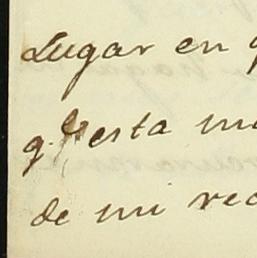 Lugar en q
q.e esta m
de mi re